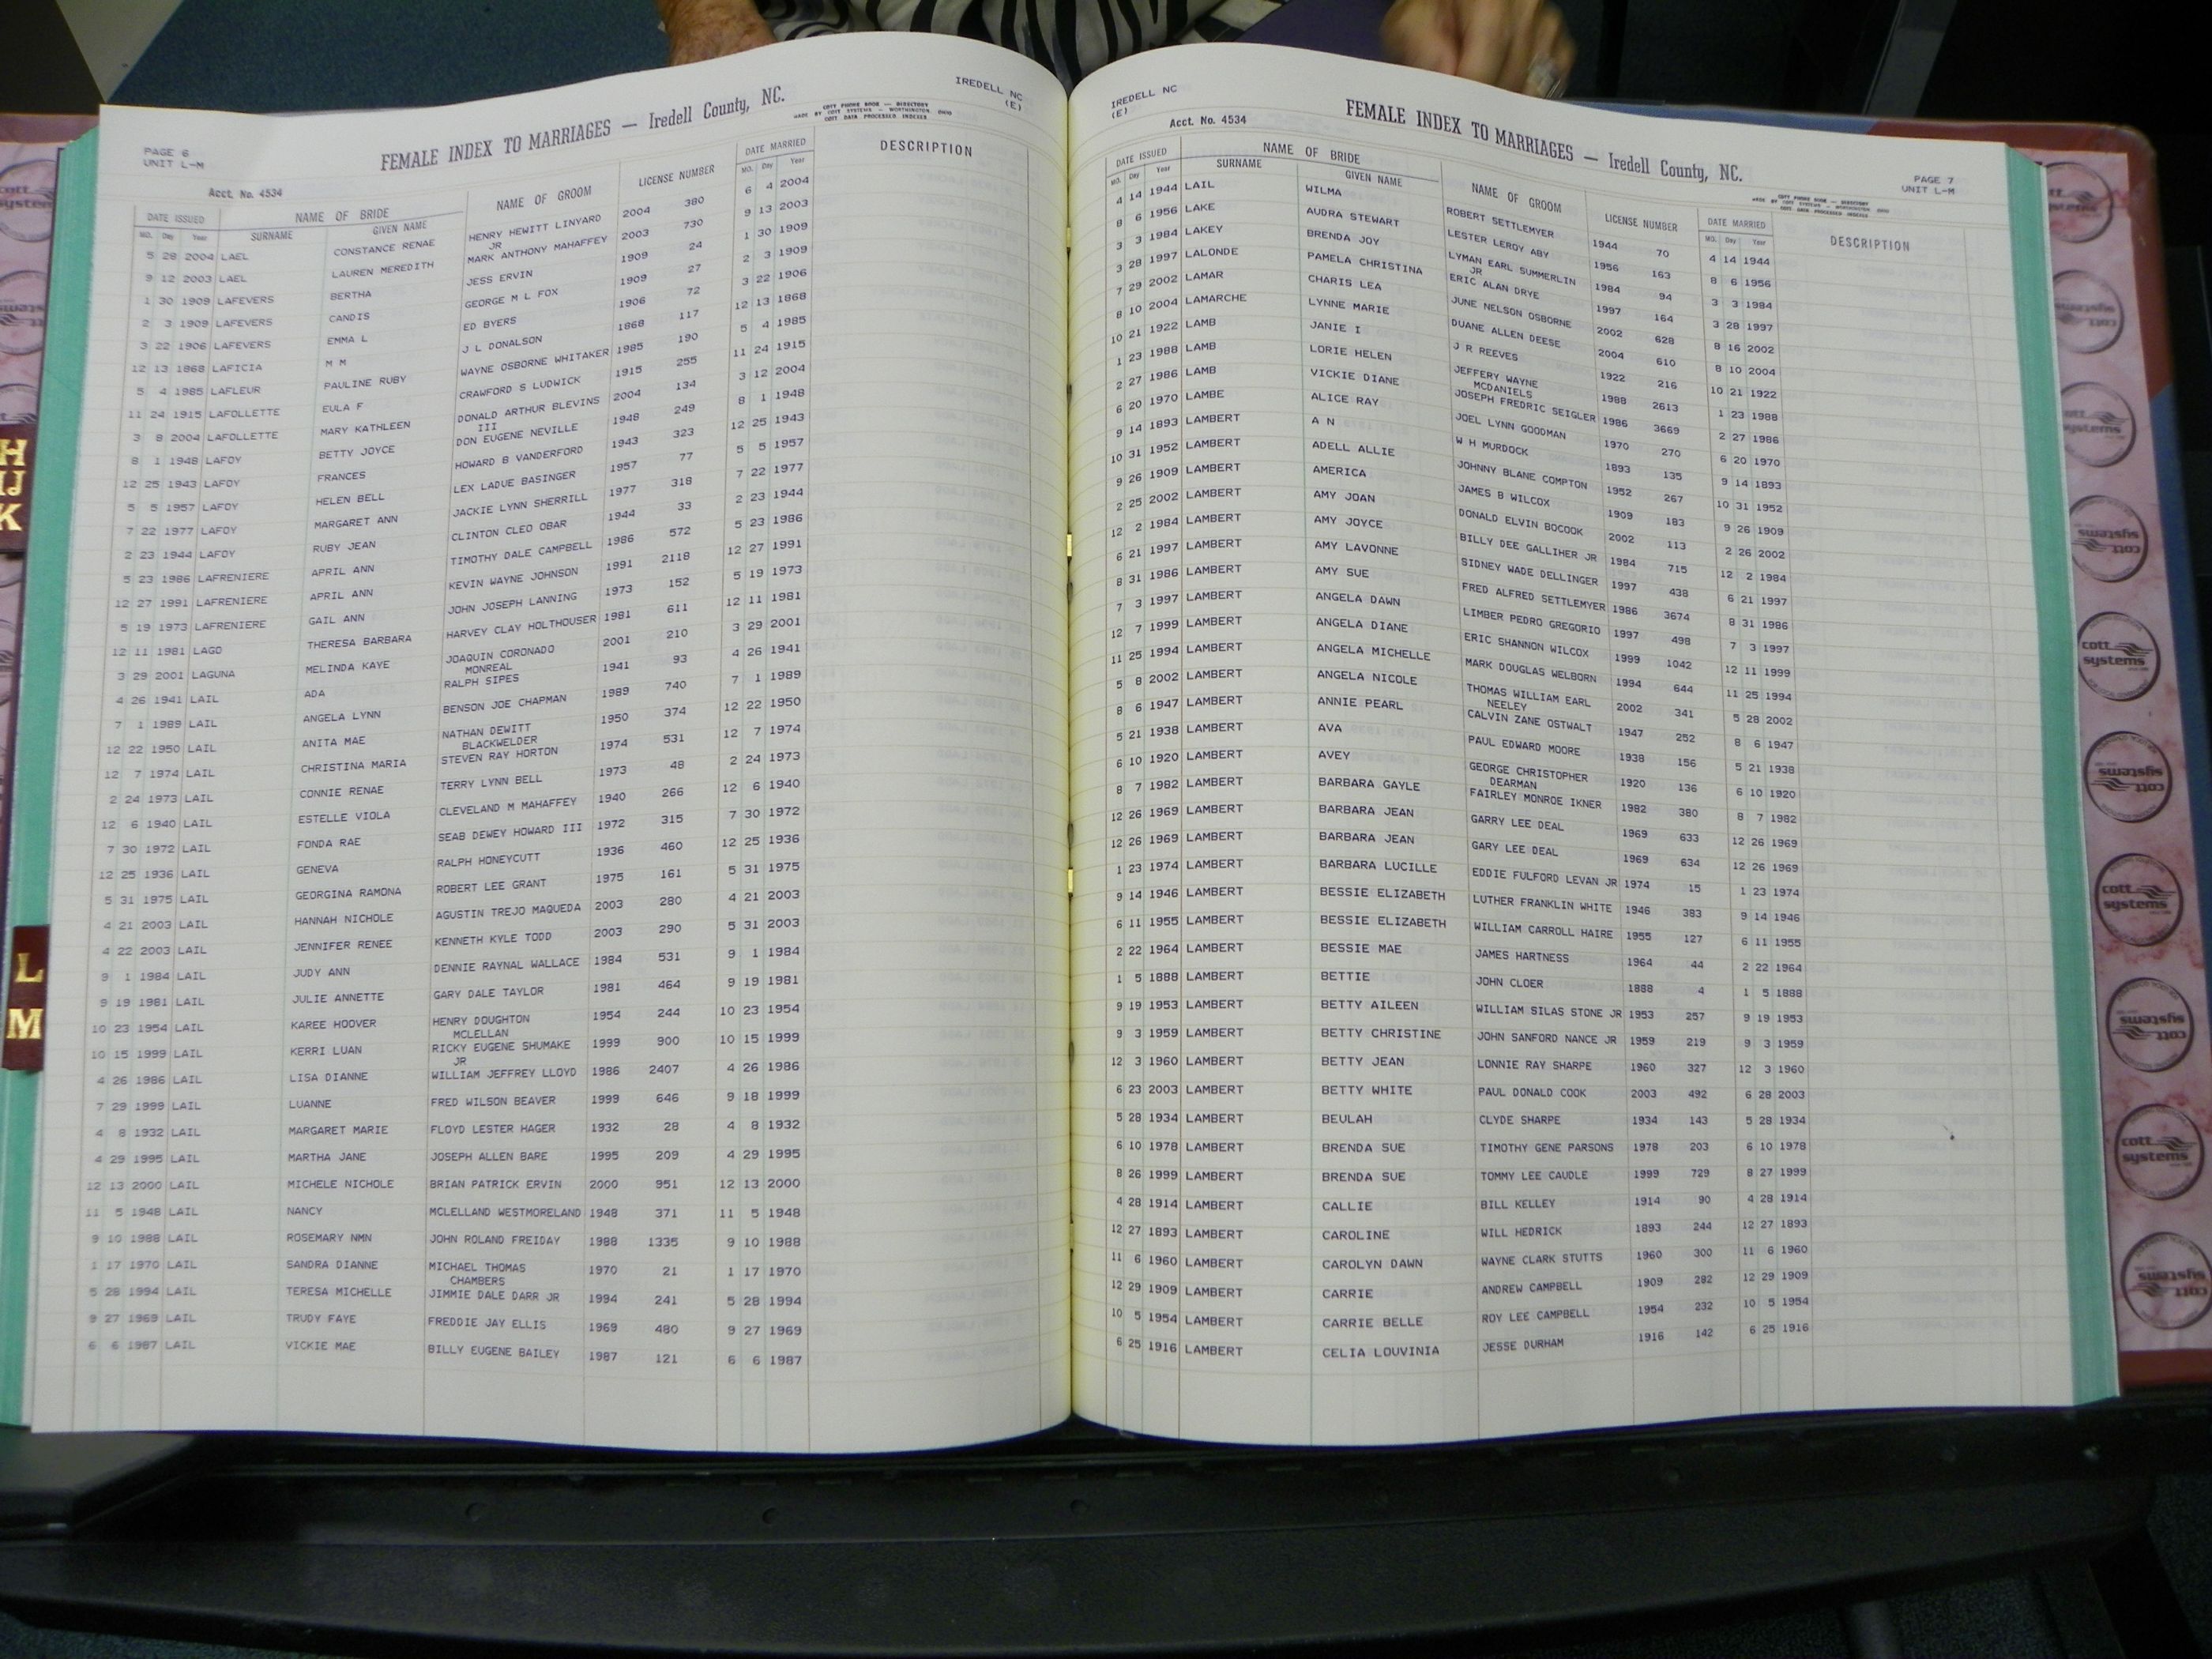 IREDELL NC
(E)
PAGE 6
UNIT L-M
FEMALE INDEX TO MARRIAGES — Iredell County, NC.
MADE BY COTT PHONE BOOK — DIRECTORY
COTT SYSTEMS — WORTHINGTON OHIO
COTT DATA PROCESSED INDEXES
Acct. No. 4534
DATE ISSUED NAME OF BRIDE NAME OF GROOM LICENSE NUMBER DATE MARRIED DESCRIPTION
MO. Day Year SURNAME GIVEN NAME MO. Day Year
5 28 2004 LAEL CONSTANCE RENAE HENRY HEWITT LINYARD 2004 380 6 4 2004
JR
9 12 2003 LAEL LAUREN MEREDITH MARK ANTHONY MAHAFFEY 2003 730 9 13 2003
1 30 1909 LAFEVERS BERTHA JESS ERVIN 1909 24 1 30 1909
2 3 1909 LAFEVERS CANDIS GEORGE M L FOX 1909 27 2 3 1909
3 22 1906 LAFEVERS EMMA L ED BYERS 1906 72 3 22 1906
12 13 1868 LAFICIA M M J L DONALSON 1868 117 12 13 1868
5 4 1985 LAFLEUR PAULINE RUBY WAYNE OSBORNE WHITAKER 1985 190 5 4 1985
11 24 1915 LAFOLLETTE EULA F CRAWFORD S LUDWICK 1915 255 11 24 1915
3 8 2004 LAFOLLETTE MARY KATHLEEN DONALD ARTHUR BLEVINS 2004 134 3 12 2004
III
8 1 1948 LAFOY BETTY JOYCE DON EUGENE NEVILLE 1948 249 8 1 1948
12 25 1943 LAFOY FRANCES HOWARD B VANDERFORD 1943 323 12 25 1943
5 5 1957 LAFOY HELEN BELL LEX LADUE BASINGER 1957 77 5 5 1957
7 22 1977 LAFOY MARGARET ANN JACKIE LYNN SHERRILL 1977 318 7 22 1977
2 23 1944 LAFOY RUBY JEAN CLINTON CLEO OBAR 1944 33 2 23 1944
5 23 1986 LAFRENIERE APRIL ANN TIMOTHY DALE CAMPBELL 1986 572 5 23 1986
12 27 1991 LAFRENIERE APRIL ANN KEVIN WAYNE JOHNSON 1991 2118 12 27 1991
5 19 1973 LAFRENIERE GAIL ANN JOHN JOSEPH LANNING 1973 152 5 19 1973
12 11 1981 LAGO THERESA BARBARA HARVEY CLAY HOLTHOUSER 1981 611 12 11 1981
3 29 2001 LAGUNA MELINDA KAYE JOAQUIN CORONADO 2001 210 3 29 2001
MONREAL
4 26 1941 LAIL ADA RALPH SIPES 1941 93 4 26 1941
7 1 1989 LAIL ANGELA LYNN BENSON JOE CHAPMAN 1989 740 7 1 1989
12 22 1950 LAIL ANITA MAE NATHAN DEWITT 1950 374 12 22 1950
BLACKWELDER
12 7 1974 LAIL CHRISTINA MARIA STEVEN RAY HORTON 1974 531 12 7 1974
2 24 1973 LAIL CONNIE RENAE TERRY LYNN BELL 1973 48 2 24 1973
12 6 1940 LAIL ESTELLE VIOLA CLEVELAND M MAHAFFEY 1940 266 12 6 1940
7 30 1972 LAIL FONDA RAE SEAB DEWEY HOWARD III 1972 315 7 30 1972
12 25 1936 LAIL GENEVA RALPH HONEYCUTT 1936 460 12 25 1936
5 31 1975 LAIL GEORGINA RAMONA ROBERT LEE GRANT 1975 161 5 31 1975
4 21 2003 LAIL HANNAH NICHOLE AGUSTIN TREJO MAQUEDA 2003 280 4 21 2003
4 22 2003 LAIL JENNIFER RENEE KENNETH KYLE TODD 2003 290 5 31 2003
9 1 1984 LAIL JUDY ANN DENNIE RAYNAL WALLACE 1984 531 9 1 1984
9 19 1981 LAIL JULIE ANNETTE GARY DALE TAYLOR 1981 464 9 19 1981
10 23 1954 LAIL KAREE HOOVER HENRY DOUGHTON 1954 244 10 23 1954
MCLELLAN
10 15 1999 LAIL KERRI LUAN RICKY EUGENE SHUMAKE 1999 900 10 15 1999
JR
4 26 1986 LAIL LISA DIANNE WILLIAM JEFFREY LLOYD 1986 2407 4 26 1986
7 29 1999 LAIL LUANNE FRED WILSON BEAVER 1999 646 9 18 1999
4 8 1932 LAIL MARGARET MARIE FLOYD LESTER HAGER 1932 28 4 8 1932
4 29 1995 LAIL MARTHA JANE JOSEPH ALLEN BARE 1995 209 4 29 1995
12 13 2000 LAIL MICHELE NICHOLE BRIAN PATRICK ERVIN 2000 951 12 13 2000
11 5 1948 LAIL NANCY MCLELLAND WESTMORELAND 1948 371 11 5 1948
9 10 1988 LAIL ROSEMARY NMN JOHN ROLAND FREIDAY 1988 1335 9 10 1988
1 17 1970 LAIL SANDRA DIANNE MICHAEL THOMAS 1970 21 1 17 1970
CHAMBERS
5 28 1994 LAIL TERESA MICHELLE JIMMIE DALE DARR JR 1994 241 5 28 1994
9 27 1969 LAIL TRUDY FAYE FREDDIE JAY ELLIS 1969 480 9 27 1969
6 6 1987 LAIL VICKIE MAE BILLY EUGENE BAILEY 1987 121 6 6 1987
IREDELL NC
(E)
FEMALE INDEX TO MARRIAGES — Iredell County, NC.
PAGE 7
UNIT L-M
Acct. No. 4534
DATE ISSUED NAME OF BRIDE NAME OF GROOM LICENSE NUMBER DATE MARRIED DESCRIPTION
MO. Day Year SURNAME GIVEN NAME MO. Day Year
4 14 1944 LAIL WILMA ROBERT SETTLEMYER 1944 70 4 14 1944
8 6 1956 LAKE AUDRA STEWART LESTER LEROY ABY 1956 163 8 6 1956
3 3 1984 LAKEY BRENDA JOY LYMAN EARL SUMMERLIN 1984 94 3 3 1984
JR
3 28 1997 LALONDE PAMELA CHRISTINA ERIC ALAN DRYE 1997 164 3 28 1997
7 29 2002 LAMAR CHARIS LEA JUNE NELSON OSBORNE 2002 628 8 16 2002
8 10 2004 LAMARCHE LYNNE MARIE DUANE ALLEN DEESE 2004 610 8 10 2004
10 21 1922 LAMB JANIE I J R REEVES 1922 216 10 21 1922
1 23 1988 LAMB LORIE HELEN JEFFERY WAYNE 1988 2613 1 23 1988
MCDANIELS
2 27 1986 LAMB VICKIE DIANE JOSEPH FREDRIC SEIGLER 1986 3669 2 27 1986
6 20 1970 LAMBE ALICE RAY JOEL LYNN GOODMAN 1970 270 6 20 1970
9 14 1893 LAMBERT A N W H MURDOCK 1893 135 9 14 1893
10 31 1952 LAMBERT ADELL ALLIE JOHNNY BLANE COMPTON 1952 267 10 31 1952
9 26 1909 LAMBERT AMERICA JAMES B WILCOX 1909 183 9 26 1909
2 25 2002 LAMBERT AMY JOAN DONALD ELVIN BOCOOK 2002 113 2 26 2002
12 2 1984 LAMBERT AMY JOYCE BILLY DEE GALLIHER JR 1984 715 12 2 1984
6 21 1997 LAMBERT AMY LAVONNE SIDNEY WADE DELLINGER 1997 438 6 21 1997
8 31 1986 LAMBERT AMY SUE FRED ALFRED SETTLEMYER 1986 3674 8 31 1986
7 3 1997 LAMBERT ANGELA DAWN LIMBER PEDRO GREGORIO 1997 498 7 3 1997
12 7 1999 LAMBERT ANGELA DIANE ERIC SHANNON WILCOX 1999 1042 12 11 1999
11 25 1994 LAMBERT ANGELA MICHELLE MARK DOUGLAS WELBORN 1994 644 11 25 1994
5 8 2002 LAMBERT ANGELA NICOLE THOMAS WILLIAM EARL 2002 341 5 28 2002
NEELEY
8 6 1947 LAMBERT ANNIE PEARL CALVIN ZANE OSTWALT 1947 252 8 6 1947
5 21 1938 LAMBERT AVA PAUL EDWARD MOORE 1938 156 5 21 1938
6 10 1920 LAMBERT AVEY GEORGE CHRISTOPHER 1920 136 6 10 1920
DEARMAN
8 7 1982 LAMBERT BARBARA GAYLE FAIRLEY MONROE IKNER 1982 380 8 7 1982
12 26 1969 LAMBERT BARBARA JEAN GARRY LEE DEAL 1969 633 12 26 1969
12 26 1969 LAMBERT BARBARA JEAN GARY LEE DEAL 1969 634 12 26 1969
1 23 1974 LAMBERT BARBARA LUCILLE EDDIE FULFORD LEVAN JR 1974 15 1 23 1974
9 14 1946 LAMBERT BESSIE ELIZABETH LUTHER FRANKLIN WHITE 1946 383 9 14 1946
6 11 1955 LAMBERT BESSIE ELIZABETH WILLIAM CARROLL HAIRE 1955 127 6 11 1955
2 22 1964 LAMBERT BESSIE MAE JAMES HARTNESS 1964 44 2 22 1964
1 5 1888 LAMBERT BETTIE JOHN CLOER 1888 4 1 5 1888
9 19 1953 LAMBERT BETTY AILEEN WILLIAM SILAS STONE JR 1953 257 9 19 1953
9 3 1959 LAMBERT BETTY CHRISTINE JOHN SANFORD NANCE JR 1959 219 9 3 1959
12 3 1960 LAMBERT BETTY JEAN LONNIE RAY SHARPE 1960 327 12 3 1960
6 23 2003 LAMBERT BETTY WHITE PAUL DONALD COOK 2003 492 6 28 2003
5 28 1934 LAMBERT BEULAH CLYDE SHARPE 1934 143 5 28 1934
6 10 1978 LAMBERT BRENDA SUE TIMOTHY GENE PARSONS 1978 203 6 10 1978
8 26 1999 LAMBERT BRENDA SUE TOMMY LEE CAUDLE 1999 729 8 27 1999
4 28 1914 LAMBERT CALLIE BILL KELLEY 1914 90 4 28 1914
12 27 1893 LAMBERT CAROLINE WILL HEDRICK 1893 244 12 27 1893
11 6 1960 LAMBERT CAROLYN DAWN WAYNE CLARK STUTTS 1960 300 11 6 1960
12 29 1909 LAMBERT CARRIE ANDREW CAMPBELL 1909 282 12 29 1909
10 5 1954 LAMBERT CARRIE BELLE ROY LEE CAMPBELL 1954 232 10 5 1954
6 25 1916 LAMBERT CELIA LOUVINIA JESSE DURHAM 1916 142 6 25 1916
H
IJ
K
L
M
cott
systems
cott
systems
cott
systems